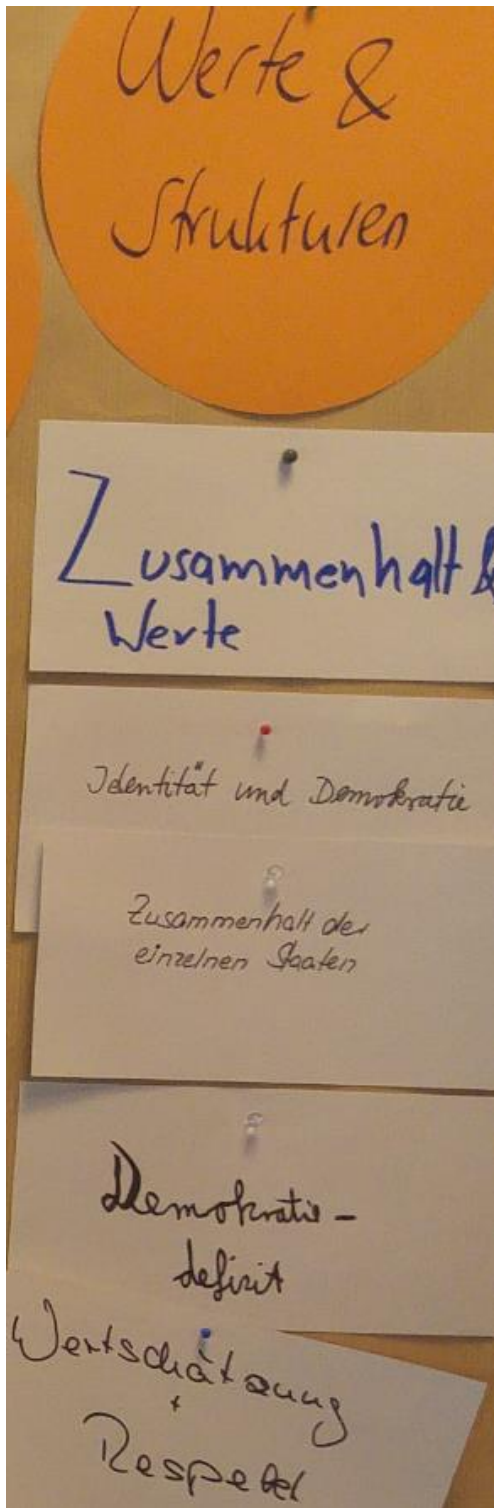 Werte &
Strukturen
Zusammenhalt &
Werte
Identität und Demokratie
Zusammenhalt der
einzelnen Staaten
Demokratie-
defizit
Wertschätzung
+
Respekt